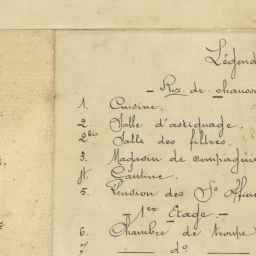 Légend
- Rez de chauss
1. Cuisine.
2. Salle d'astiquage.
2bis Salle des filtres.
3. Magasin de compagnie
4. Cantine.
5. Pension des S. Offici
- 1er Etage. -
6. Chambre de troupe
7. ___ do ___